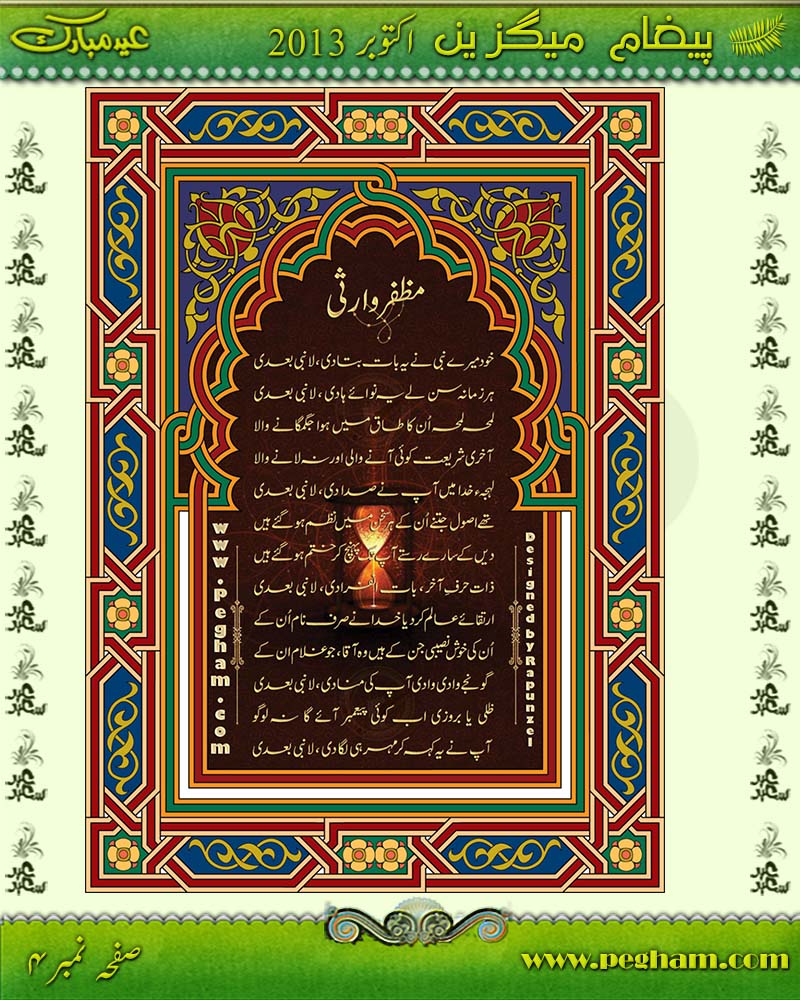 پیغام میگزین اکتوبر 2013 عید مبارک
مظفر وارثی
خود میرے نبی نے یہ بات بتا دی، لا نبی بعدی
ہر زمانہ سن لے یہ نوائے ہادی، لا نبی بعدی
لمحہ لمحہ اُن کا طاق میں ہوا جگمگانے والا
آخری شریعت کوئی آنے والی اور نہ لانے والا
لہجہء خدا میں آپ نے صدا دی، لا نبی بعدی
تھے اصول جتنے اُن کے ہر سخن میں نظم ہو گئے ہیں
دیں کے سارے رستے آپ تک پہنچ کر ختم ہو گئے ہیں
ذات حرفِ آخر، بات انفرادی، لا نبی بعدی
ارتقائے عالم کر دیا خدا نے صرف نام اُن کے
اُن کی خوش نصیبی جن کے ہیں وہ آقا، جو غلام ان کے
گونجے وادی وادی آپ کی منادی، لا نبی بعدی
ظلی یا بروزی اب کوئی پیعمبر آئے گا نہ لوگو
آپ نے یہ کہہ کر مہر ہی لگا دی، لا نبی بعدی
www.Pegham.com
Designed by Rapunzel
صفحہ نمبر ۴
www.pegham.com